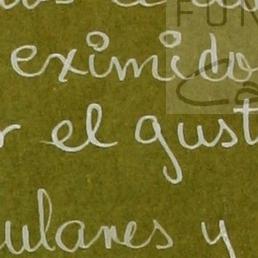 eximido
r el gust
ulares y